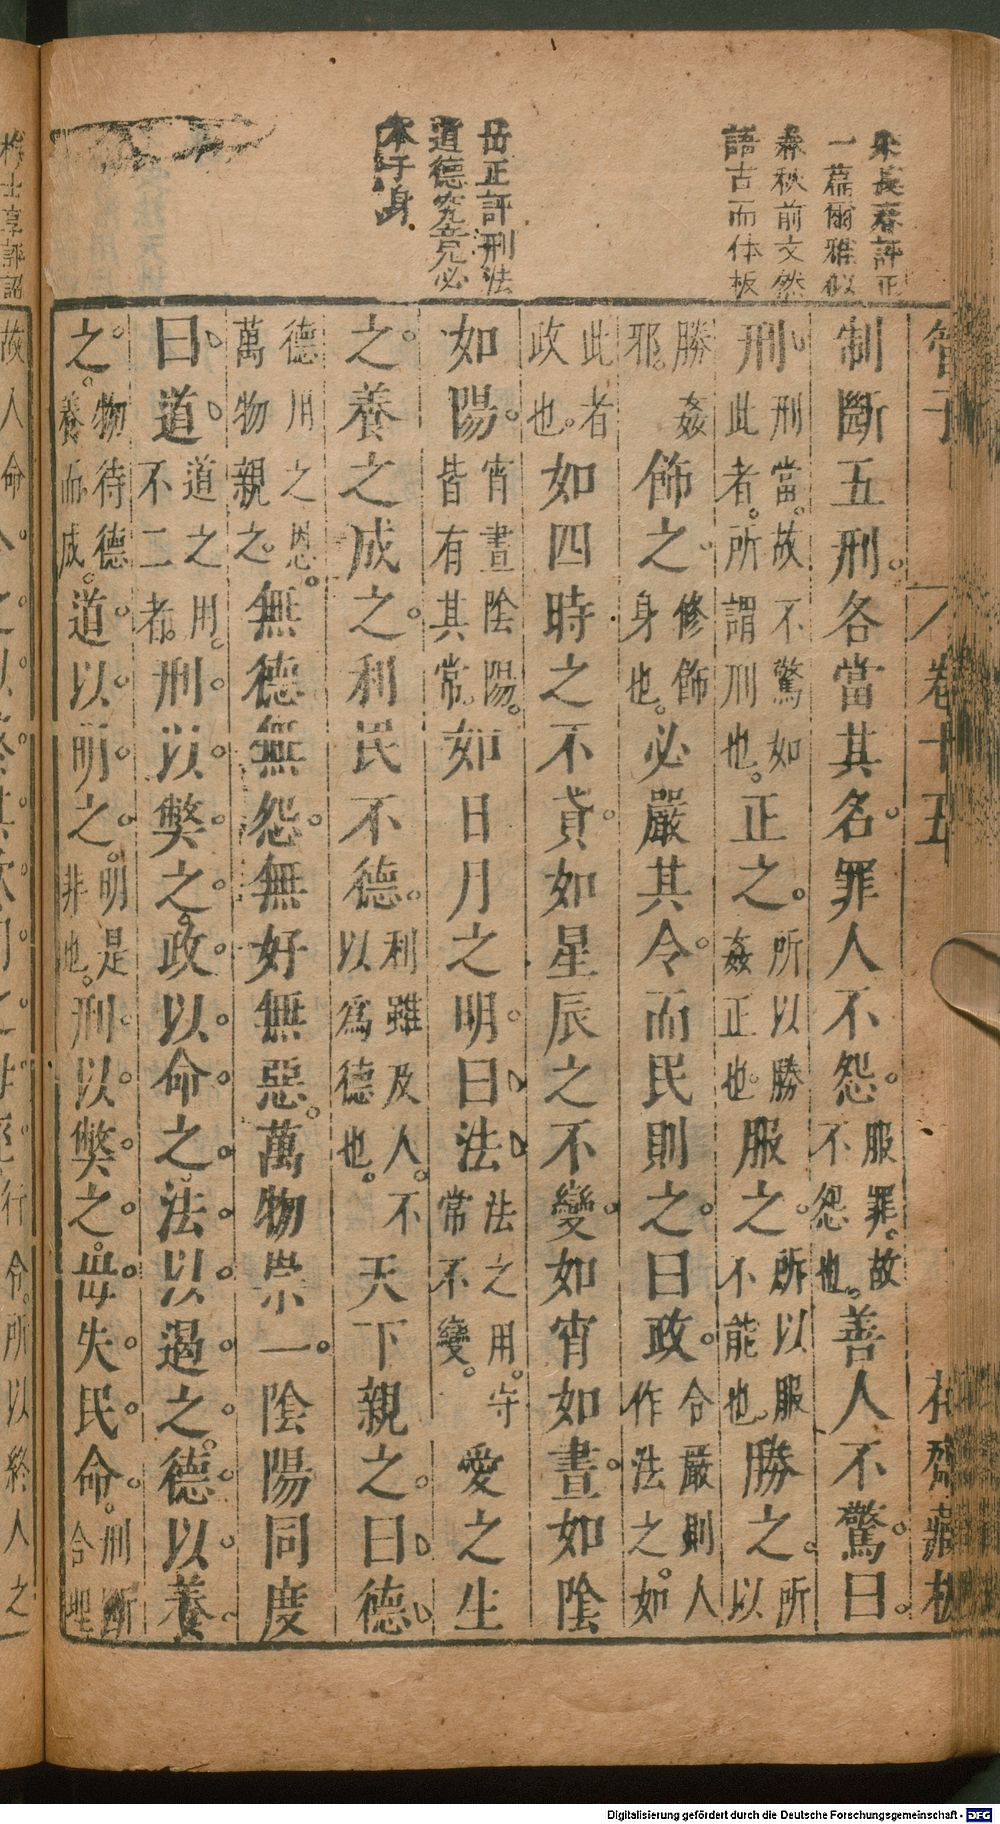 朱長春評正
一篇爾雅似
春秋前文然
語古而体板
岳正評刑法
道德究竟必
本于身
管子
卷十五
花齋藏板
制斷五刑。各當其名。罪人不怨。服罪。故不怨也。善人不驚。曰。
刑、刑當。故不驚如此者。所謂刑也。正之。所以勝姦正也。服之。所以服不能也。勝之。所以
勝姦邪。飾之。修飾身也。必嚴其令。而民則之。曰政。令嚴則人作法之。如
此者政也。如四時之不貣。如星辰之不變。如宵如晝。如陰
如陽。宵晝陰陽。皆有其常。如日月之明。曰法、法之用。守常不變。愛之生
之。養之成之。利民不德。利雖及人。不以為德也。天下親之。曰德、
德用之恩。萬物親之。無德無怨。無好無惡。萬物崇一。陰陽同度
曰、道、道之用。不二者。刑。以獘之。政。以命之。法。以遏之。德。以養
之。物待德養而成。道。以明之。明是非也。刑。以獘之。毋失民命。刑斷合理
梅士享評詔
故人命
行令。所以終人之
Digitalisierung gefördert durch die Deutsche Forschungsgemeinschaft - DFG